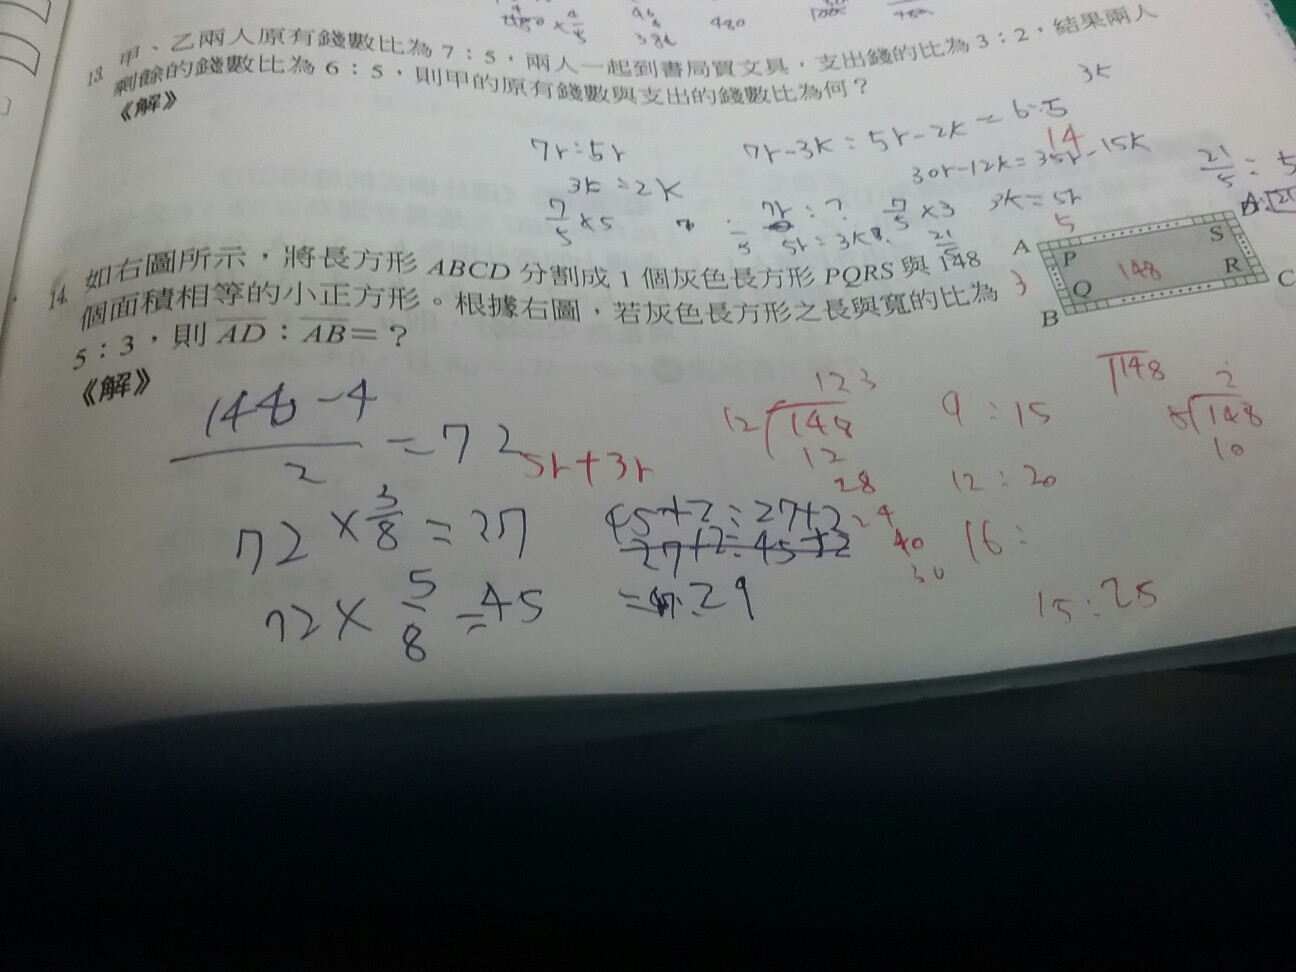 13. 甲、乙兩人原有錢數比為 7:5,兩人一起到書局買文具,支出錢的比為 3:2,結果兩人
剩餘的錢數比為 6:5,則甲的原有錢數與支出的錢數比為何?
《解》
480
3k
7r:5r
7r-3k:5r-2k=6:5
14
3k=2k
30r-12k=35r-15k
21/5
7/5×5
7r:?
7/5×3
3k=5r
5r=3k
21/5
14. 如右圖所示,將長方形 ABCD 分割成 1 個灰色長方形 PQRS 與 148
個面積相等的小正方形。根據右圖,若灰色長方形之長與寬的比為
5:3,則 AD:AB=?
A
5
S
P
148
R
3
Q
C
B
《解》
148-4/2=72
5r+3r
72×3/8=27
72×5/8=45
45+2:27+2
27+2:45+2
=47:29
123
12 148
12
28
24
40
30
9:15
12:20
16:
15:25
148
2
148
10